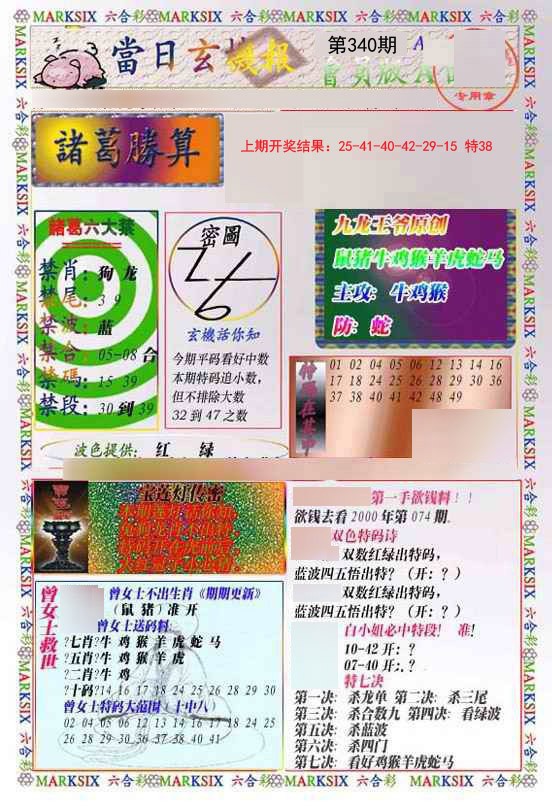 MARKSIX 六合彩 MARKSIX 六合彩 MARKSIX 六合彩 MARKSIX 六合彩
當日玄機報
第340期
專用章
諸葛勝算
上期开奖结果：25-41-40-42-29-15 特38
諸葛六大禁
禁肖：狗 龙
禁尾：3 9
禁波：蓝
禁合：05-08 合
禁碼：15 39
禁段：30 到 39
密圖
玄機話你知
今期平码看好中数
本期特码追小数，
但不排除大数
32 到 47 之数
九龙王爷原创
鼠猪牛鸡猴羊虎蛇马
主攻：牛鸡猴
防：蛇
01 02 04 05 06 12 13 14 16
17 18 24 25 26 28 29 30 36
37 38 40 41 42 48 49
波色提供：红 绿
宝莲灯传密
第一手欲钱料！！
欲钱去看 2000 年第 074 期.
双色特码诗
双数红绿出特码，
蓝波四五悟出特？（开：？）
双数红绿出特码，
蓝波四五悟出特？（开：？）
白小姐必中特段！ 准！
10-42 开：？
07-40 开：？
特七决
第一决：杀龙单 第二决：杀三尾
第三决：杀合数九 第四决：看绿波
第五决：杀蓝波
第六决：杀四门
第七决：看好鸡猴羊虎蛇马
曾女士救世
曾女士不出生肖《期期更新》
（鼠 猪）准 开
曾女士送码料
?七肖?牛 鸡 猴 羊 虎 蛇 马
?五肖?牛 鸡 猴 羊 虎
?二肖?牛 鸡
?十码?14 16 17 18 24 25 26 28 29 30
曾女士特码大范围（十中八）
02 04 05 06 12 13 14 16 17 18 24 25
26 28 29 30 36 37 38 40 41
MARKSIX 六合彩 MARKSIX 六合彩 MARKSIX 六合彩 MARKSIX 六合彩